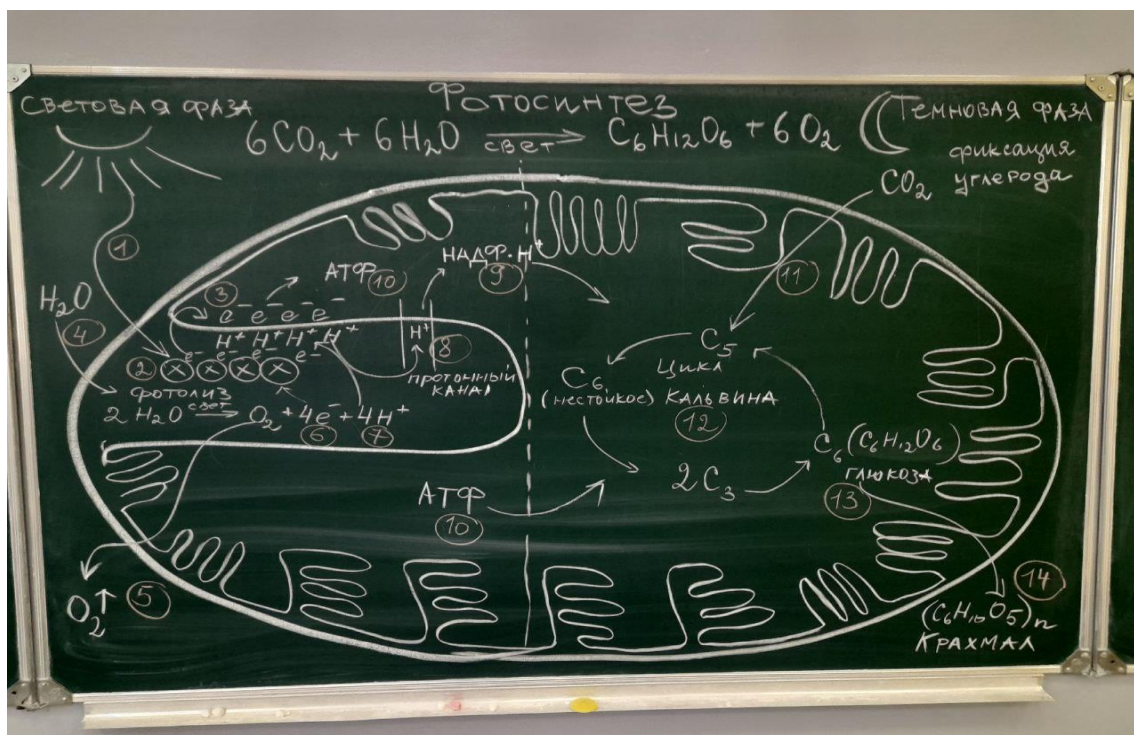 Фотосинтез
СВЕТОВАЯ ФАЗА
6CO₂ + 6H₂O свет → C₆H₁₂O₆ + 6O₂
ТЕМНОВАЯ ФАЗА
фиксация
углерода
CO₂
1
H₂O
4
3
АТФ 10
НАДФ·H⁺
9
11
e⁻ e⁻ e⁻ e⁻
H⁺ H⁺ H⁺ H⁺
H⁺
8
e⁻ e⁻ e⁻ e⁻
2
ПРОТОННЫЙ
КАНАЛ
фотолиз
2H₂O свет → O₂ + 4e⁻ + 4H⁺
6 7
C₅
Цикл
КАЛЬВИНА
12
C₆
(нестойкое)
2C₃
C₆(C₆H₁₂O₆)
глюкоза
13
АТФ
10
O₂↑
5
14
(C₆H₁₀O₅)n
КРАХМАЛ